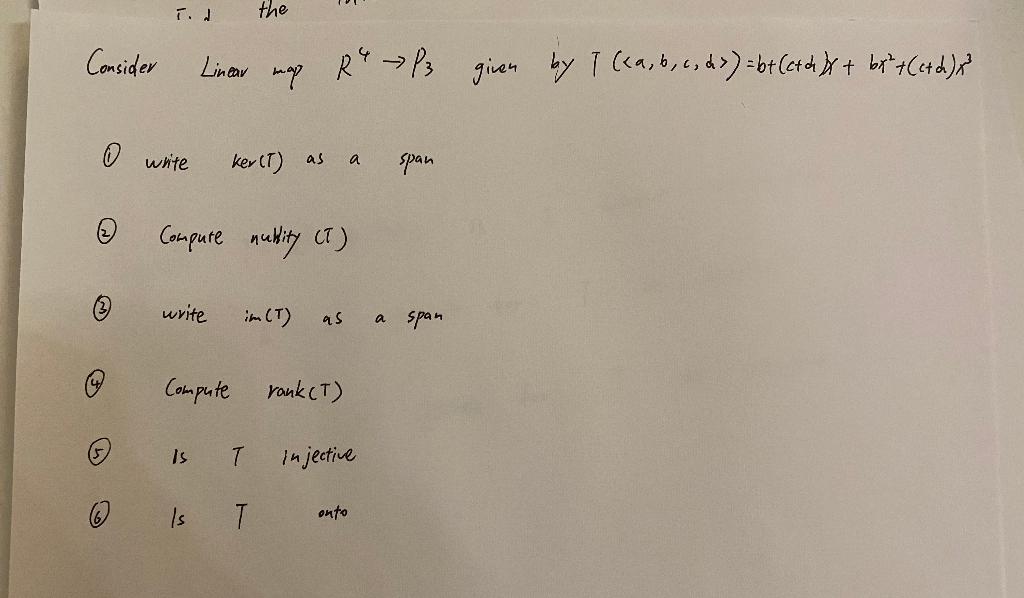 the
Consider Linear map R⁴ → P₃ given by T (<a, b, c, d>) = b+(c+d)x + bx²+(c+d)x³
① write ker(T) as a span
② Compute nullity (T)
③ write im(T) as a span
④ Compute rank(T)
⑤ Is T injective
⑥ Is T onto